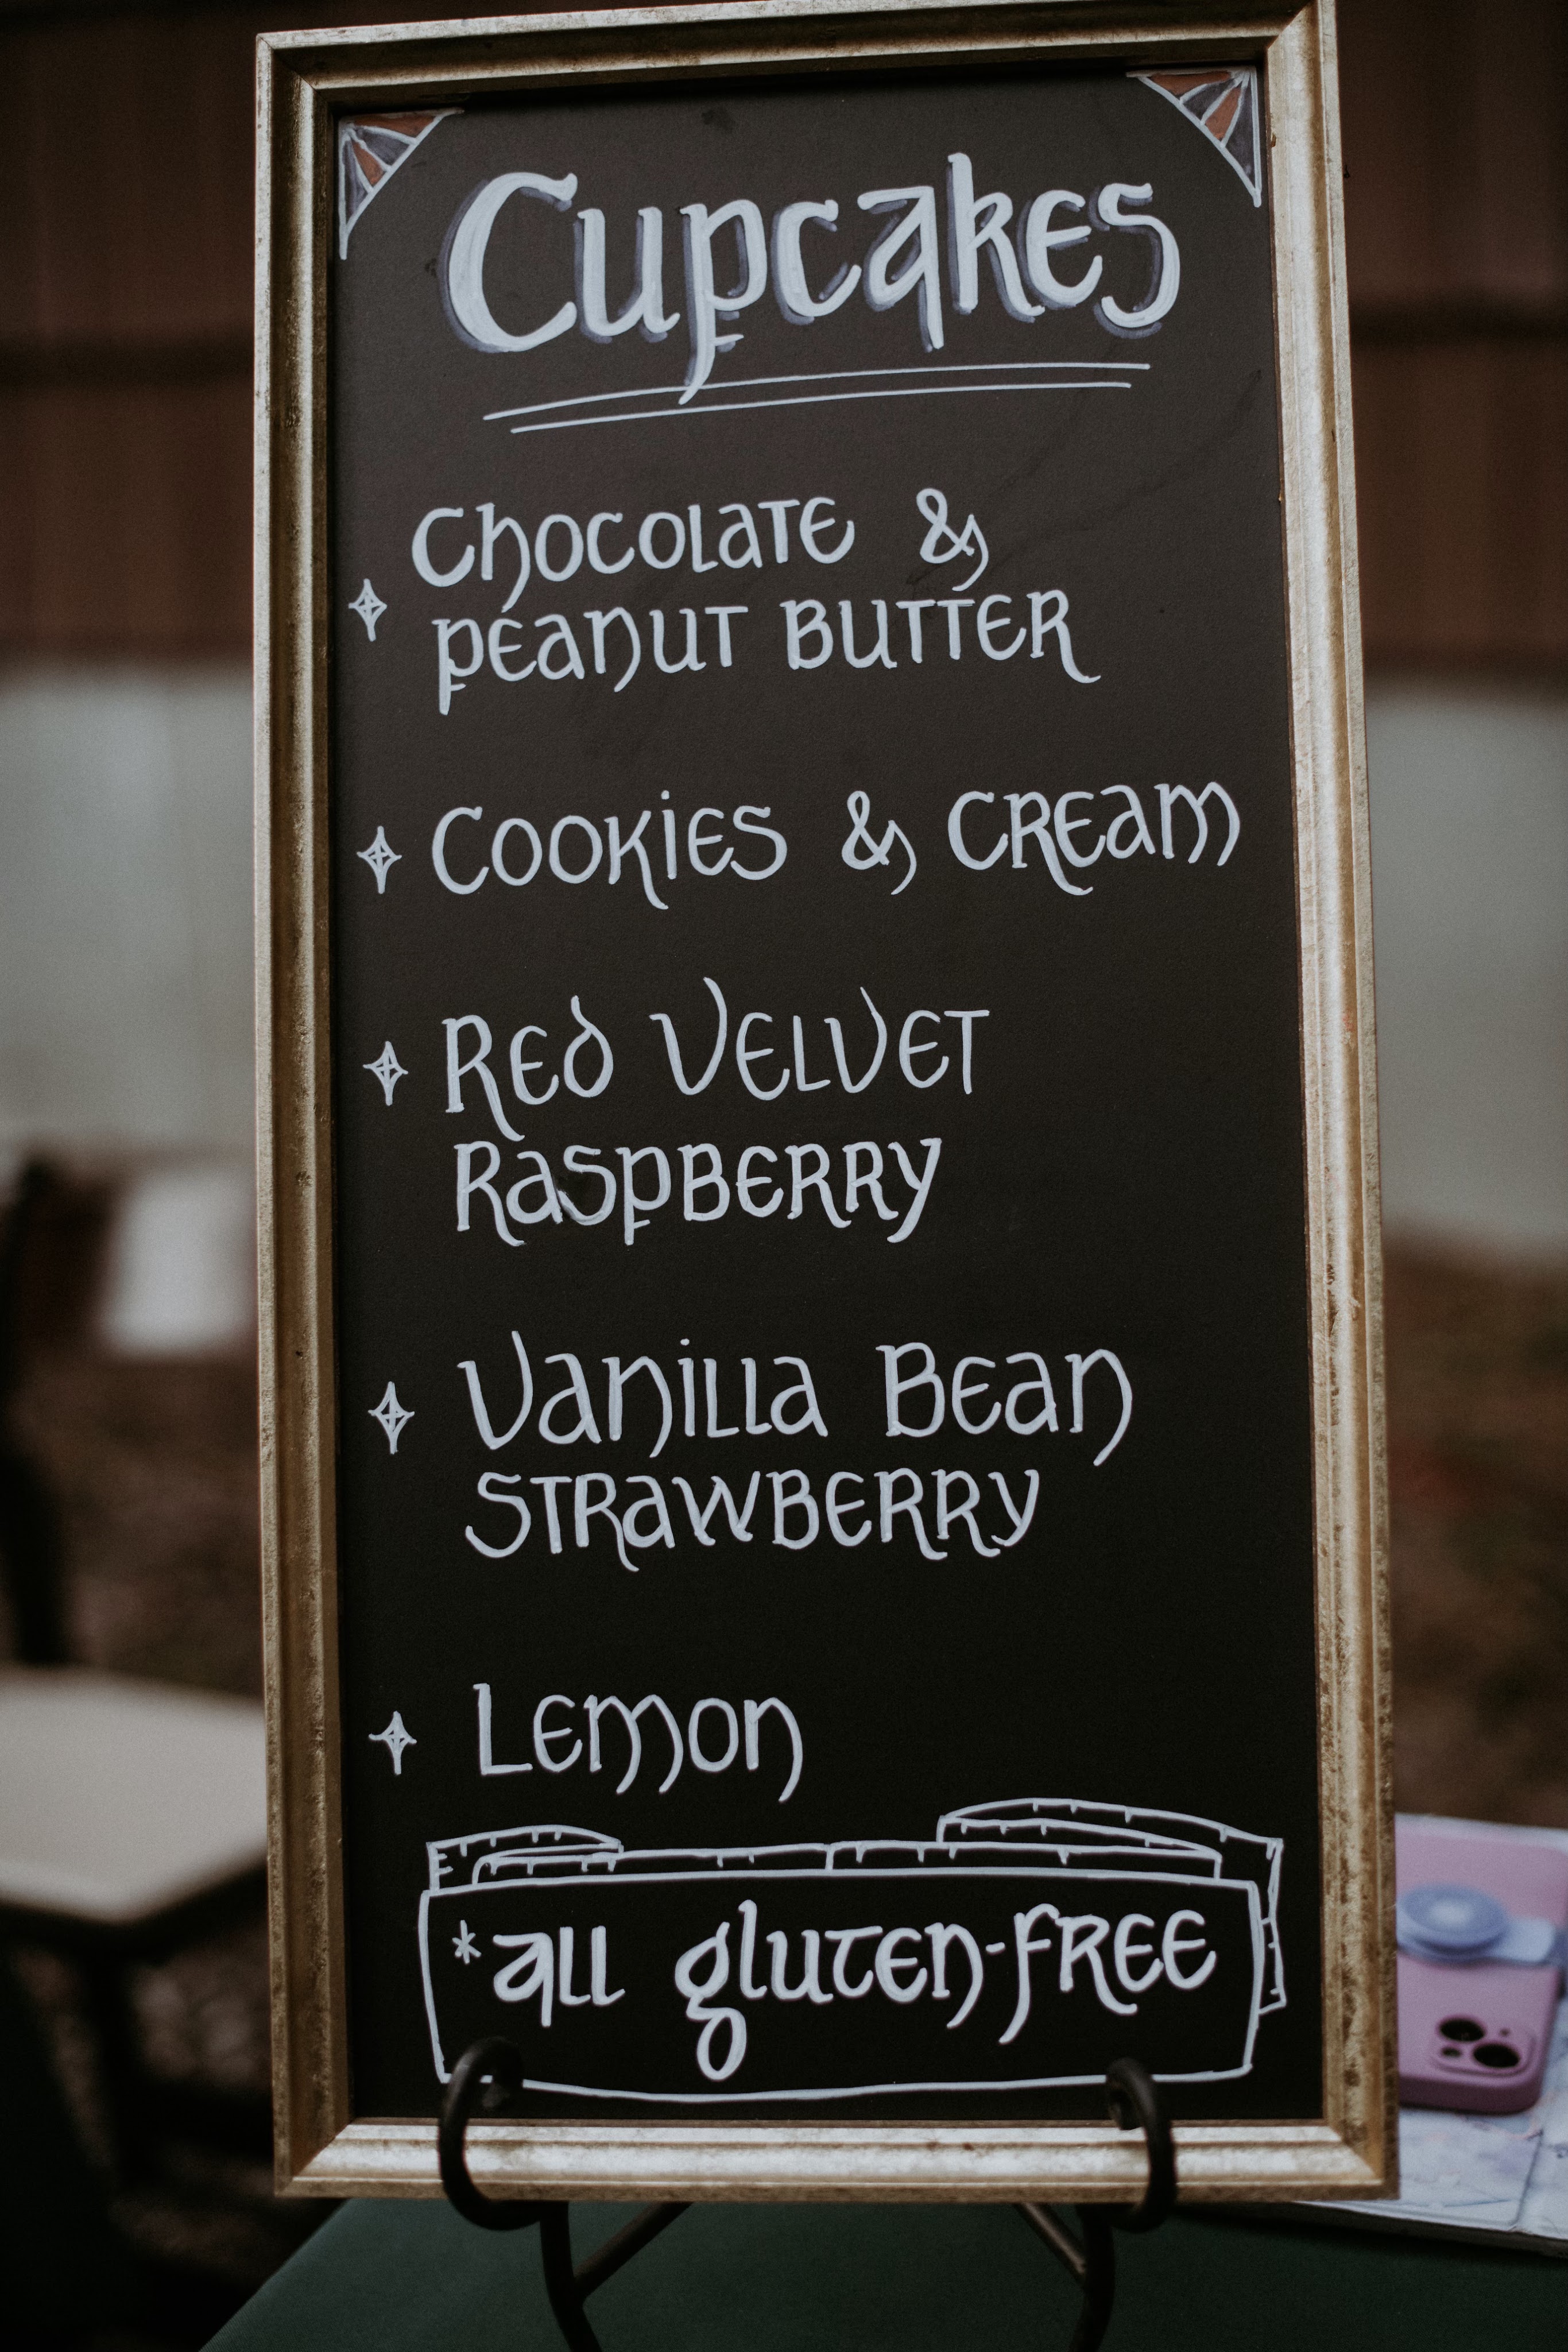 Cupcakes
Chocolate &
Peanut Butter
Cookies & Cream
Red Velvet
Raspberry
Vanilla Bean
Strawberry
Lemon
*all gluten-free